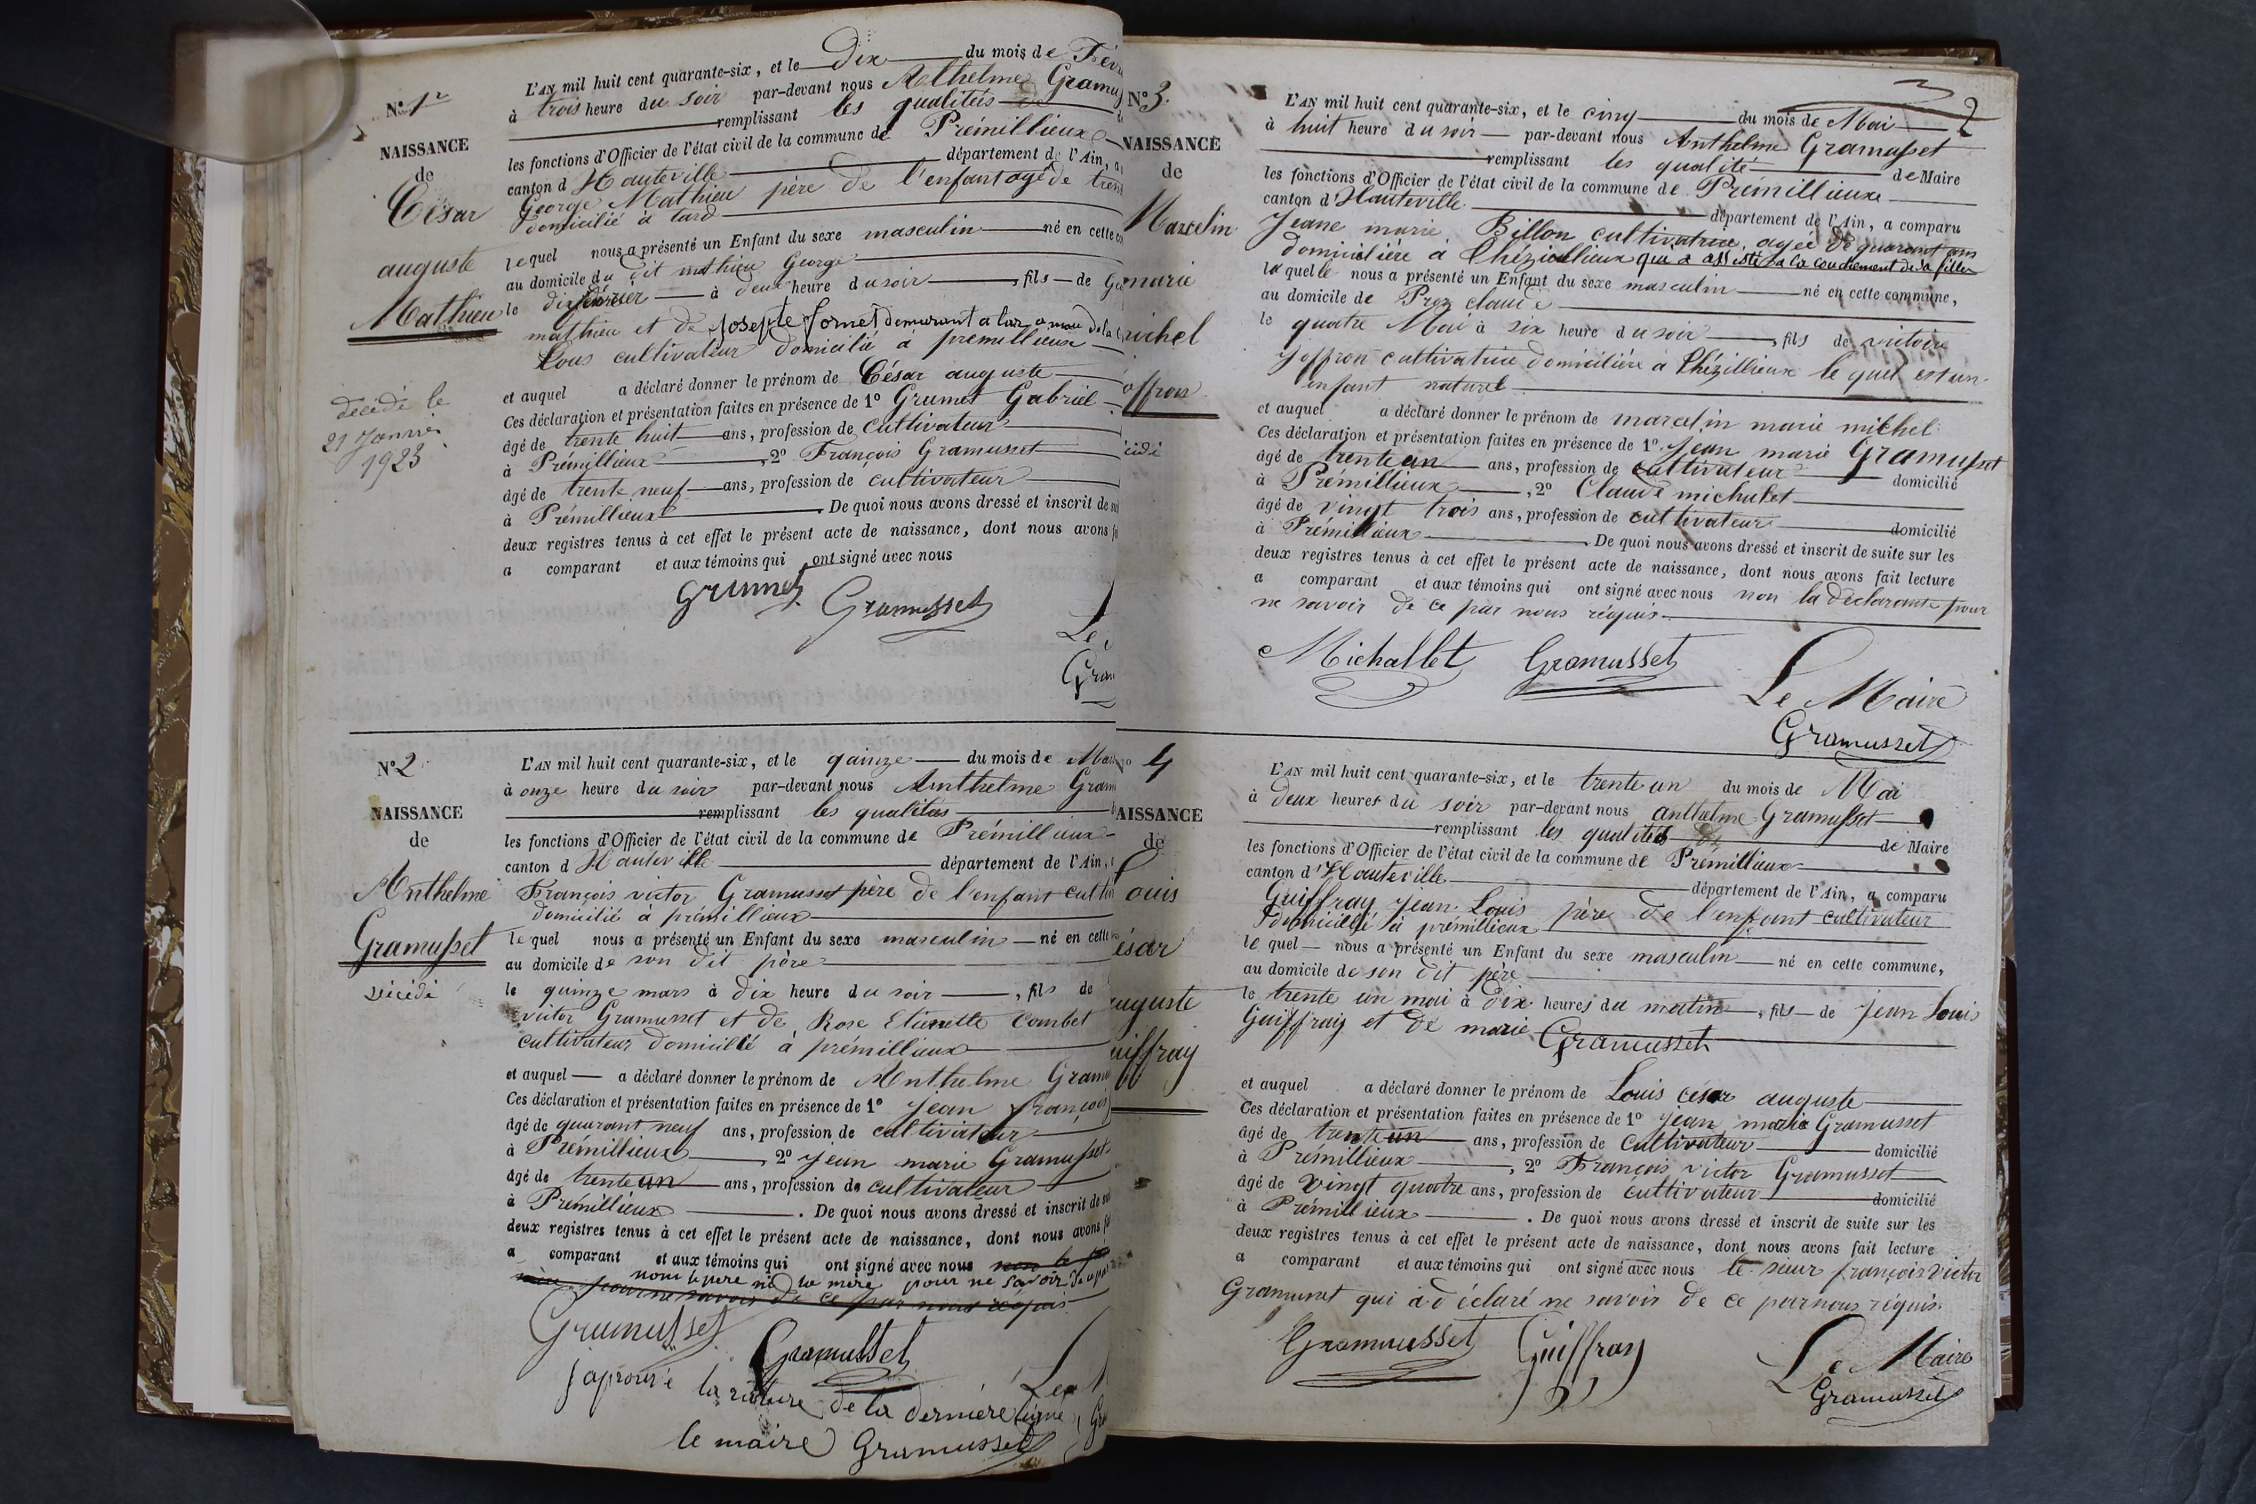 N° 1er
NAISSANCE
de
César
auguste
Mathieu
décédé le
21 Janvier
1923
L'AN mil huit cent quarante-six, et le Dix du mois de Fév
à trois heure du soir par-devant nous Gramus
remplissant les qualités
les fonctions d'Officier de l'état civil de la commune de Prémillieux
canton d Hauteville département de l'Ain, a
George Mathieu père de l'enfant agé de tren
domicilié à lard
lequel nous a présenté un Enfant du sexe masculin né en cette co
au domicile du dit mathieu George
le dix février à deux heure du soir, fils de G
mathieu et de Josepte fornet demurant a
tous cultivateur domicilié à prémillieux
et auquel a déclaré donner le prénom de César auguste
Ces déclaration et présentation faites en présence de 1° Grumet Gabriel
âgé de trente huit ans, profession de cultivateur
à Prémillieux, 2° François Gramusset
âgé de trente neuf ans, profession de cultivateur
à Prémillieux. De quoi nous avons dressé et inscrit de su
deux registres tenus à cet effet le présent acte de naissance, dont nous avons f
a comparant et aux témoins qui ont signé avec nous
Grumet Gramusset
Le
Gram
N° 2
NAISSANCE
de
Anthelme
Gramusset
décédé
L'AN mil huit cent quarante-six, et le quinze du mois de Mar
à onze heure du soir par-devant nous Anthelme Gram
remplissant les qualités
les fonctions d'Officier de l'état civil de la commune de Prémillieux
canton d Hauteville département de l'Ain,
François victor Gramusset père de l'enfant culti
domicilié à prémillieux
lequel nous a présenté un Enfant du sexe masculin né en cette
au domicile de son dit père
le quinze mars à dix heure du soir, fils de
victor Gramusset et de Rose Etienette Combet
cultivateur domicilié à prémillieux
et auquel a déclaré donner le prénom de Anthelme Gram
Ces déclaration et présentation faites en présence de 1° jean françois
âgé de quarant neuf ans, profession de cultivateur
à Prémillieux, 2° jean marie Gramusset
âgé de trente un ans, profession de cultivateur
à Prémillieux. De quoi nous avons dressé et inscrit de su
deux registres tenus à cet effet le présent acte de naissance, dont nous avons f
a comparant et aux témoins qui ont signé avec nous non le
non le père ni la mère pour ne savoir de ce par
pour ne savoir de ce par nous réquis
Gramusset
Gramusset
japrouve la rature de la dernière ligne
le maire Gramusset
N° 3.
NAISSANCE
de
Marcelin
marie
michel
offron
écédé
2
L'AN mil huit cent quarante-six, et le cinq du mois de Mai
à huit heure du soir par-devant nous Anthelme Gramusset
remplissant les qualité de Maire
les fonctions d'Officier de l'état civil de la commune de Prémillieux
canton d'Hauteville département de l'Ain, a comparu
Jeane marie Billon cultivatrice agée de quarant ans
domicilière à Chézillieux qui a assisté a la couchement de sa fille
laquelle nous a présenté un Enfant du sexe masculin né en cette commune,
au domicile de Proz claude
le quatre Mai à six heure du soir, fils de victoire
Joffron cultivatrice domicilière a Chézillieux le quel est un
enfant naturel
et auquel a déclaré donner le prénom de marcelin marie michel
Ces déclaration et présentation faites en présence de 1° Jean marie Gramusset
âgé de trente un ans, profession de cultivateur domicilié
à Prémillieux, 2° Claude michalet
âgé de vingt trois ans, profession de cultivateur domicilié
à Prémillieux. De quoi nous avons dressé et inscrit de suite sur les
deux registres tenus à cet effet le présent acte de naissance, dont nous avons fait lecture
a comparant et aux témoins qui ont signé avec nous non la déclarante pour
ne savoir de ce par nous réquis
Michallet Gramusset
Le Maire
Gramusset
4
AISSANCE
de
Louis
ésar
auguste
uiffray
L'AN mil huit cent quarante-six, et le trente un du mois de Mai
à deux heures du soir par-devant nous anthelme Gramusset
remplissant les qualités de Maire
les fonctions d'Officier de l'état civil de la commune de Prémillieux
canton d'Hauteville département de l'Ain, a comparu
Guiffray jean Louis père de l'enfant cultivateur
domicilié à prémillieux
le quel nous a présenté un Enfant du sexe masculin né en cette commune,
au domicile de son dit père
le trente un mai à dix heures du matin, fils de jean Louis
Guiffray et de marie Gramusset
et auquel a déclaré donner le prénom de Louis césar auguste
Ces déclaration et présentation faites en présence de 1° jean marie Gramusset
âgé de trente un ans, profession de cultivateur domicilié
à Prémillieux, 2° François victor Gramusset
âgé de vingt quatre ans, profession de cultivateur domicilié
à Prémillieux. De quoi nous avons dressé et inscrit de suite sur les
deux registres tenus à cet effet le présent acte de naissance, dont nous avons fait lecture
a comparant et aux témoins qui ont signé avec nous le sieur françois victor
Gramusset qui a déclaré ne savoir de ce par nous réquis
Gramusset Guiffray
Le Maire
Gramusset